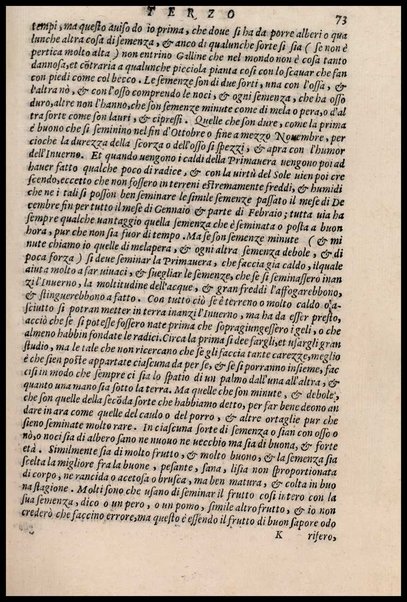 TERZO 73
tempi, ma questo auiso do io prima, che doue si ha da porre alberi o qua
lunche altra cosa di semenza, & anco di qualunche sorte si sia (se non è
pertica molto alta) non entrino Galline che nel mondo non è cosa tanto
dannosa, et cōtraria a qualunche picciola pianta cosi con lo scauar che fan
con piedi come col becco. Le semenze son di due sorti, una con l'ossa, &
l'altra nò, & con l'osso comprendo le noci, & ogni semenza, che ha osso
duro, altre non l'hanno, che son semenze minute come di mela o pera, o d'al
tra sorte come son lauri, & cipressi. Quelle che son dure, come la prima
è buono che si seminino nel fin d'Ottobre o fine a mezzo Nouembre, per
cioche la durezza della scorza o dell'osso si spezzi, & apra con l'humor
dell'Inuerno. Et quando uengono i caldi della Primauera uengono poi ad
hauer fatto qualche poco di radice, & con la uirtù del Sole uien poi cre
scendo, eccetto che non fossero in terreni estremamente freddi, & humidi
che ne i tali si posson ben seminare le simile semenze passato il mese di De
cembre fin per tutto il mese di Gennaio & parte di Febraio; tutta uia ha
sempre qualche uantaggio quella semenza che è seminata o posta a buon
hora, pur che non sia fuor di tempo. Ma se son semenze minute (& mi
nute chiamo io quelle di melapera, & ogni altra semenza debole, & di
poca forza) si deue seminar la Primauera, che faccia gia caldo, il quale
aiuta molto a far uiuaci, & suegliar le semenze, che se si seminassero inan
zi l'Inuerno, la moltitudine dell'acque, & gran freddi l'affogarebbono,
& stinguerebbono a fatto. Con tutto ciò se è terreno o molto caldo o a-
sciutto si potran metter in terra inanzi l'Inuerno, ma ha da esser presto,
acciò che se si potesse fossero nate prima che sopragiungessero i geli, o che
almeno habbin fondate le radici. Circa la prima si dee fargli, et usargli gran
studio, ma le tale che non ricercano che se gli faccia tante carezze, meglio
è che sien poste appartate ciascuna da per se, & se si porranno insieme, fac
cisi in modo che sempre ci sia lo spatio di un palmo dall'una all'altra, &
quanto una mano sia sotto la terra. Ma quelle che son minute, & debole,
che son quelle della secōda sorte che habbiamo detto, per far bene deono an
dare in ara come quelle del caudo o del porro, & altre ortaglie pur che
sieno seminate molto rare. In ciascuna sorte di semenza o sian con osso o
nò, o noci sia di albero sano ne nuouo ne uecchio ma sia di buona, & forte
età. Similmente sia di molto frutto, & molto buono, & la semenza sia
scelta la migliore fra la buone, pesante, sana, lisia non sproportionata
di corpo, ne rancida o acetosa o brusca, ma ben matura, & colta in buo
na stagione. Molti sono che usano di seminar il frutto cosi intero con la
sua semenza, dico o un pero, o un pomo, simile altro frutto, & io non
crederò che faccino errore, ma questo è essendo il frutto di buon sapore odo
K rifero,